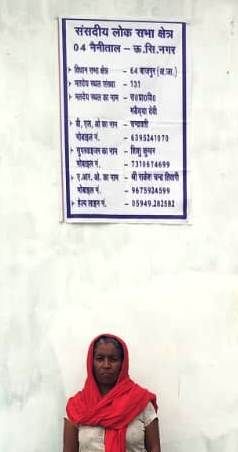 संसदीय लोक सभा क्षेत्र
04 नैनीताल - ऊ.सि.नगर
विधान सभा क्षेत्र - 64 बाजपुर (अ.जा.)
मतदेय स्थल संख्या - 131
मतदेय स्थल का नाम - रा०प्रा०वि०
देवी
बी. एल. ओ का नाम -
मोबाइल नं. - 6395241070
सुपरवाइजर का नाम - शिशु कुमार
मोबाइल नं. - 7310674699
ए.आर.ओ. का नाम - श्री राकेश चन्द्र तिवारी
मोबाइल नं. - 9675924599
हेल्प लाइन नं. - 05949.282582